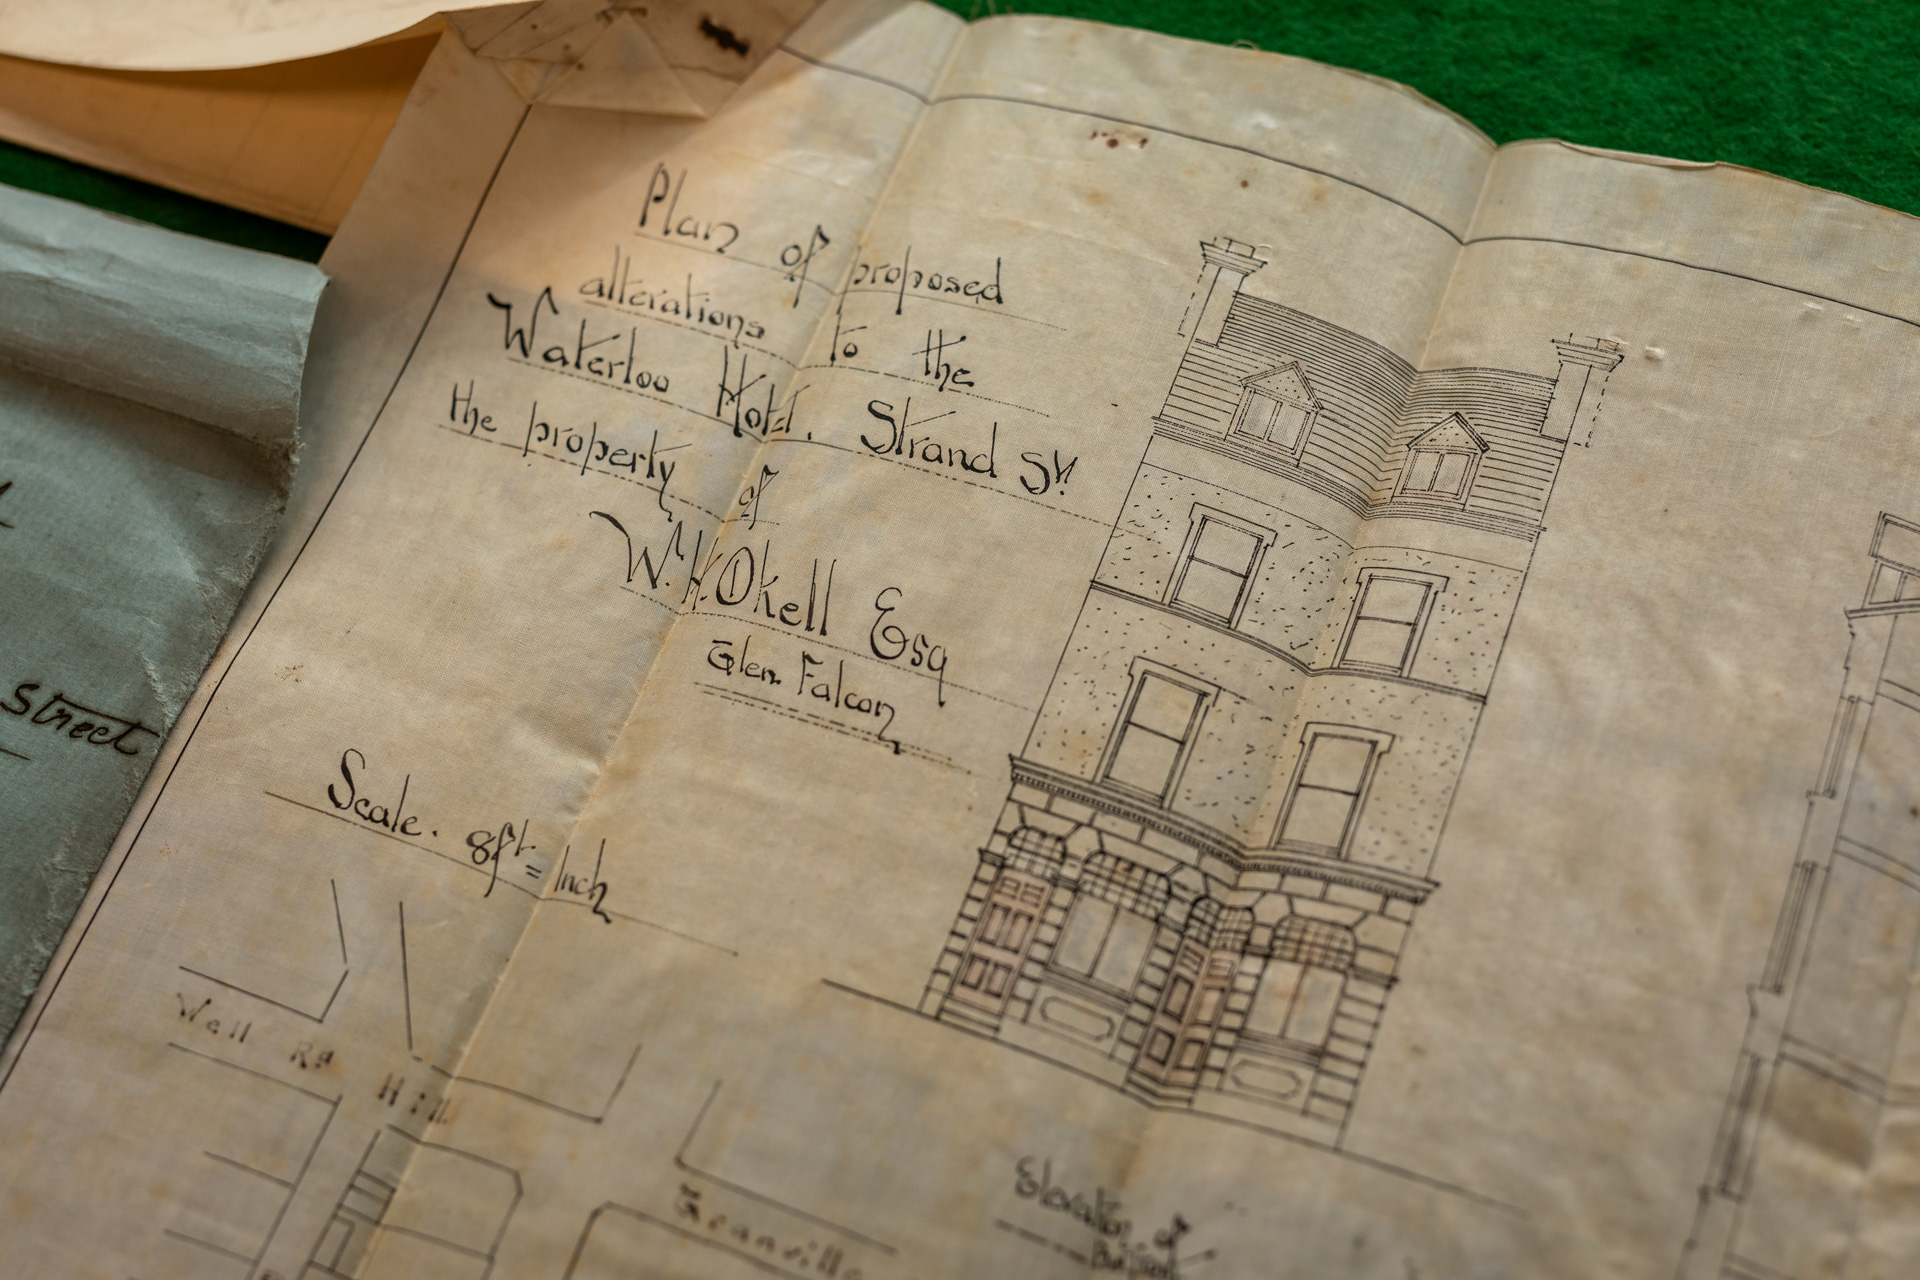 Plan of proposed
alterations to the
Waterloo Hotel. Strand St.
the property of
W. H. Okell Esq
Glen Falcon
Scale. 8ft = 1 Inch
Well Rd
Hill
Granville
Elevation of
Street